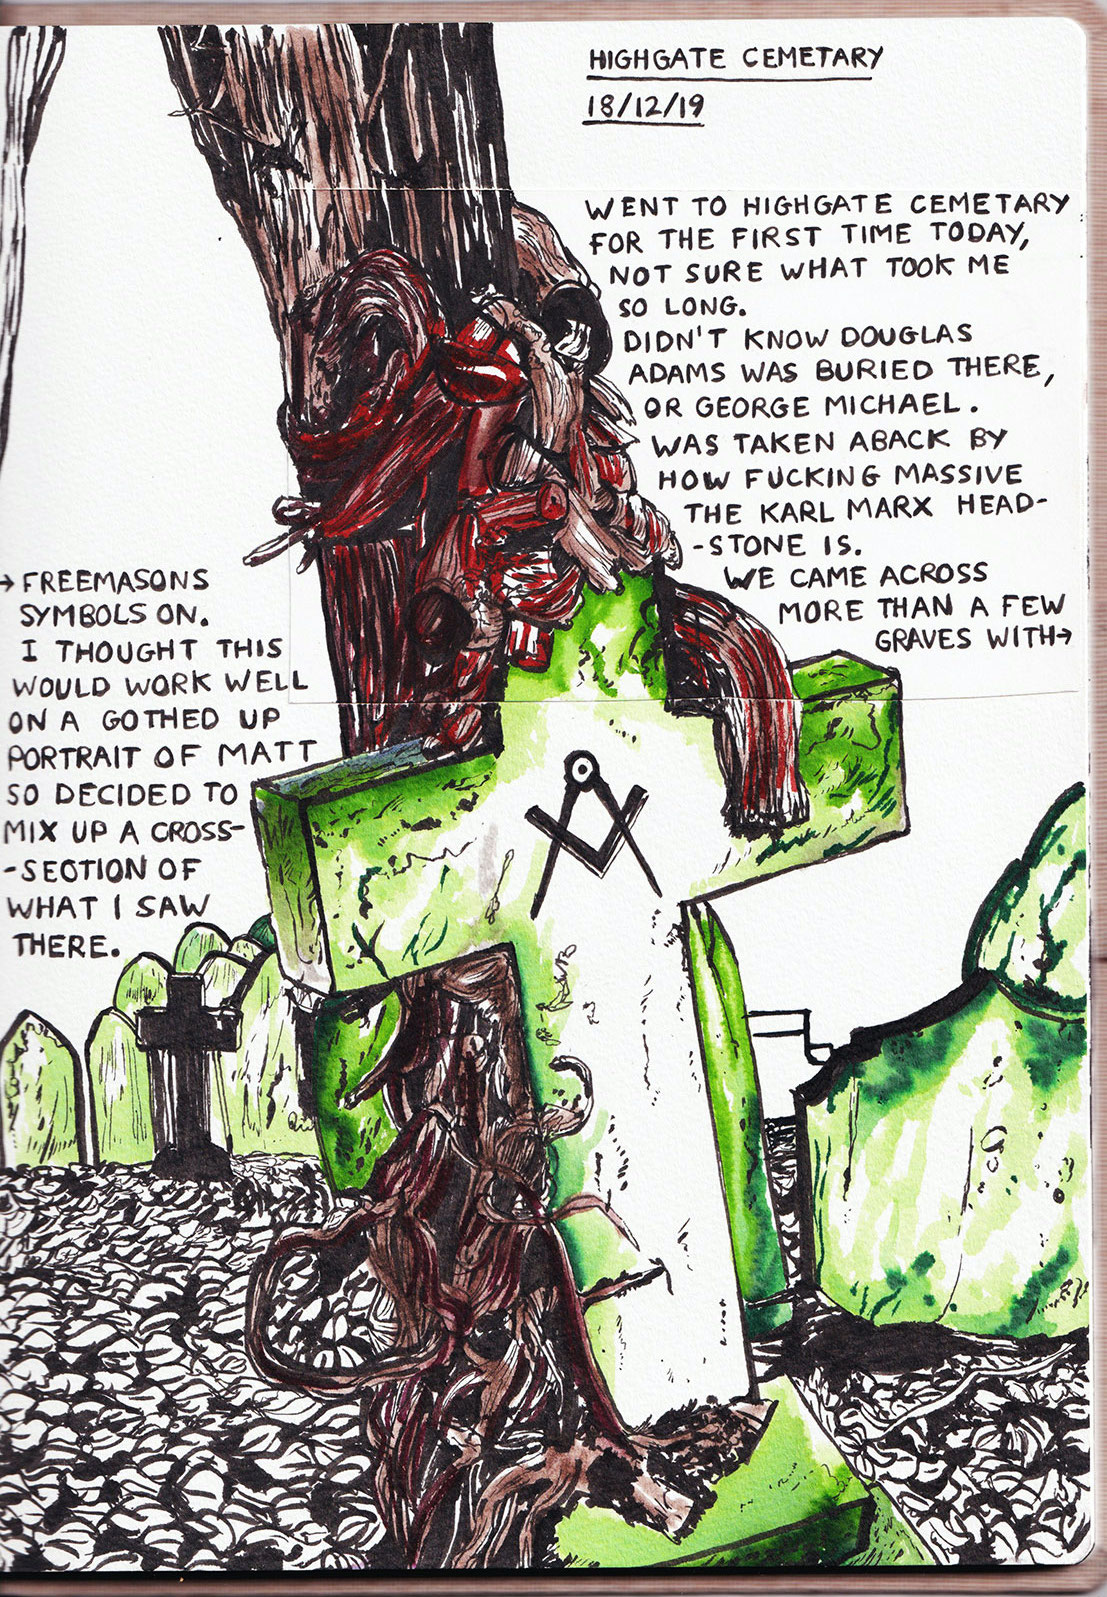 HIGHGATE CEMETARY
18/12/19
WENT TO HIGHGATE CEMETARY
FOR THE FIRST TIME TODAY,
NOT SURE WHAT TOOK ME
SO LONG.
DIDN'T KNOW DOUGLAS
ADAMS WAS BURIED THERE,
OR GEORGE MICHAEL.
WAS TAKEN ABACK BY
HOW FUCKING MASSIVE
THE KARL MARX HEAD-
-STONE IS.
WE CAME ACROSS
MORE THAN A FEW
GRAVES WITH→
→FREEMASONS
SYMBOLS ON.
I THOUGHT THIS
WOULD WORK WELL
ON A GOTHED UP
PORTRAIT OF MATT
SO DECIDED TO
MIX UP A CROSS-
-SECTION OF
WHAT I SAW
THERE.